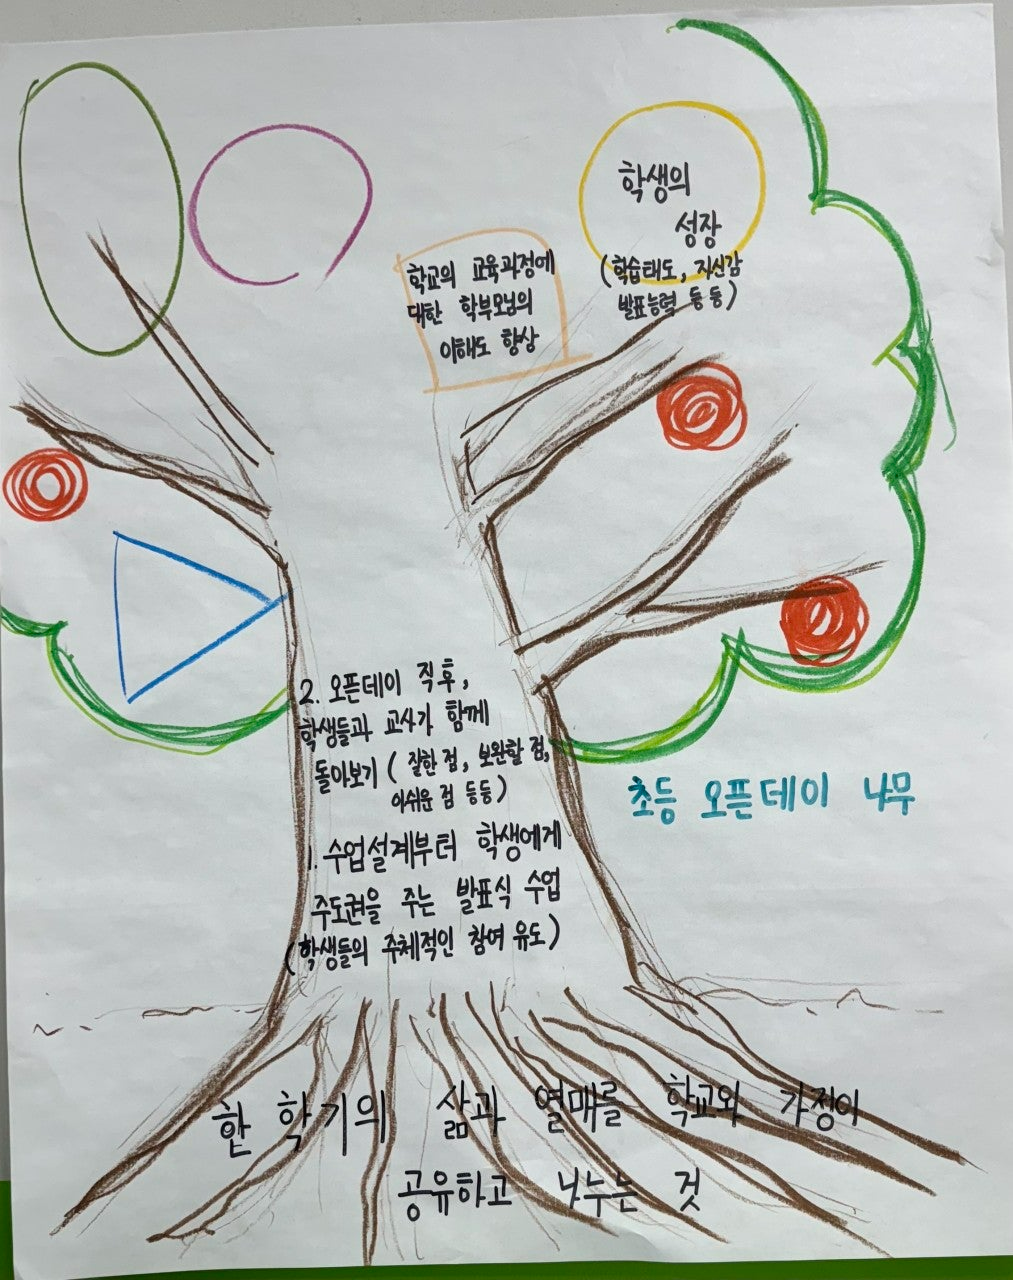 학생의
성장
(학습태도, 자신감
발표능력 등등)
학교의 교육과정에
대한 학부모님의
이해도 향상
2. 오픈데이 직후,
학생들과 교사가 함께
돌아보기 (잘한 점, 보완할 점,
아쉬운 점 등등)
초등 오픈데이 나무
1. 수업설계부터 학생에게
주도권을 주는 발표식 수업
(학생들의 주체적인 참여 유도)
한 학기의 삶과 열매를 학교와 가정이
공유하고 나누는 것